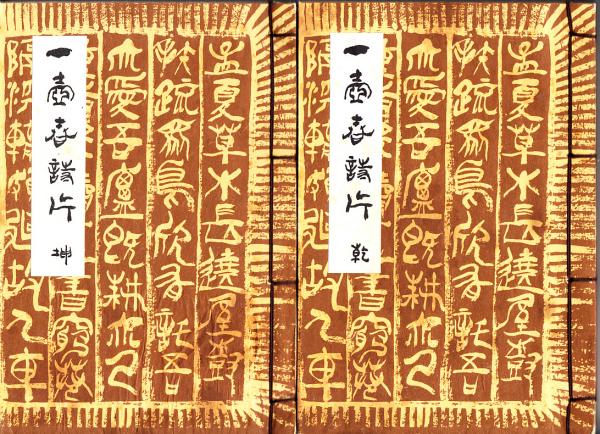 一壺春詩片 乾
孟夏草木長遶屋樹
扶疏衆鳥欣有託吾
亦愛吾廬既耕亦已
書窮巷
隔深轍頗廻故人車
一壺春詩片 坤
孟夏草木長遶屋樹
扶疏衆鳥欣有託吾
亦愛吾廬既耕亦已
書窮巷
隔深轍頗廻故人車